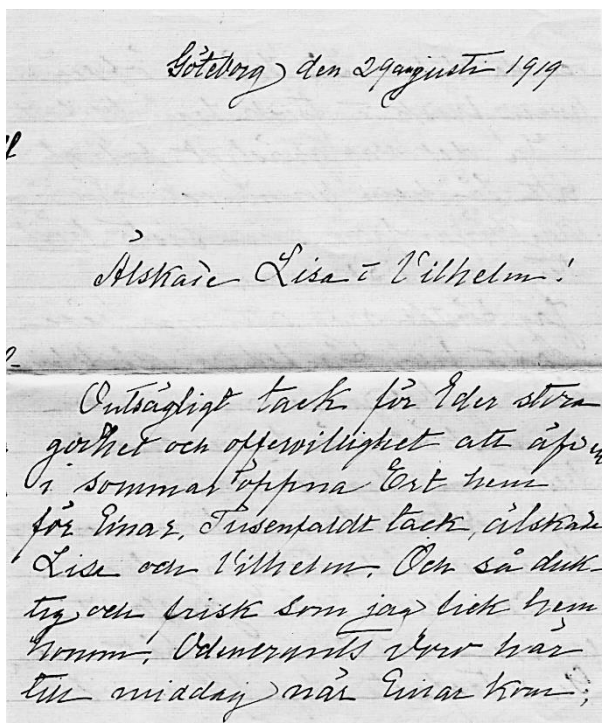 Göteborg den 29 augusti 1919
Älskade Lisa o Vilhelm!
Outsägligt tack för Eder stora
godhet och offervillighet att äfven
i sommar öppna Ert hem
för Einar. Tusenfaldt tack, älskade
Lisa och Vilhelm. Och så duk-
tig och frisk som jag fick hem
honom. Odencrants voro här
till middag när Einar kom,